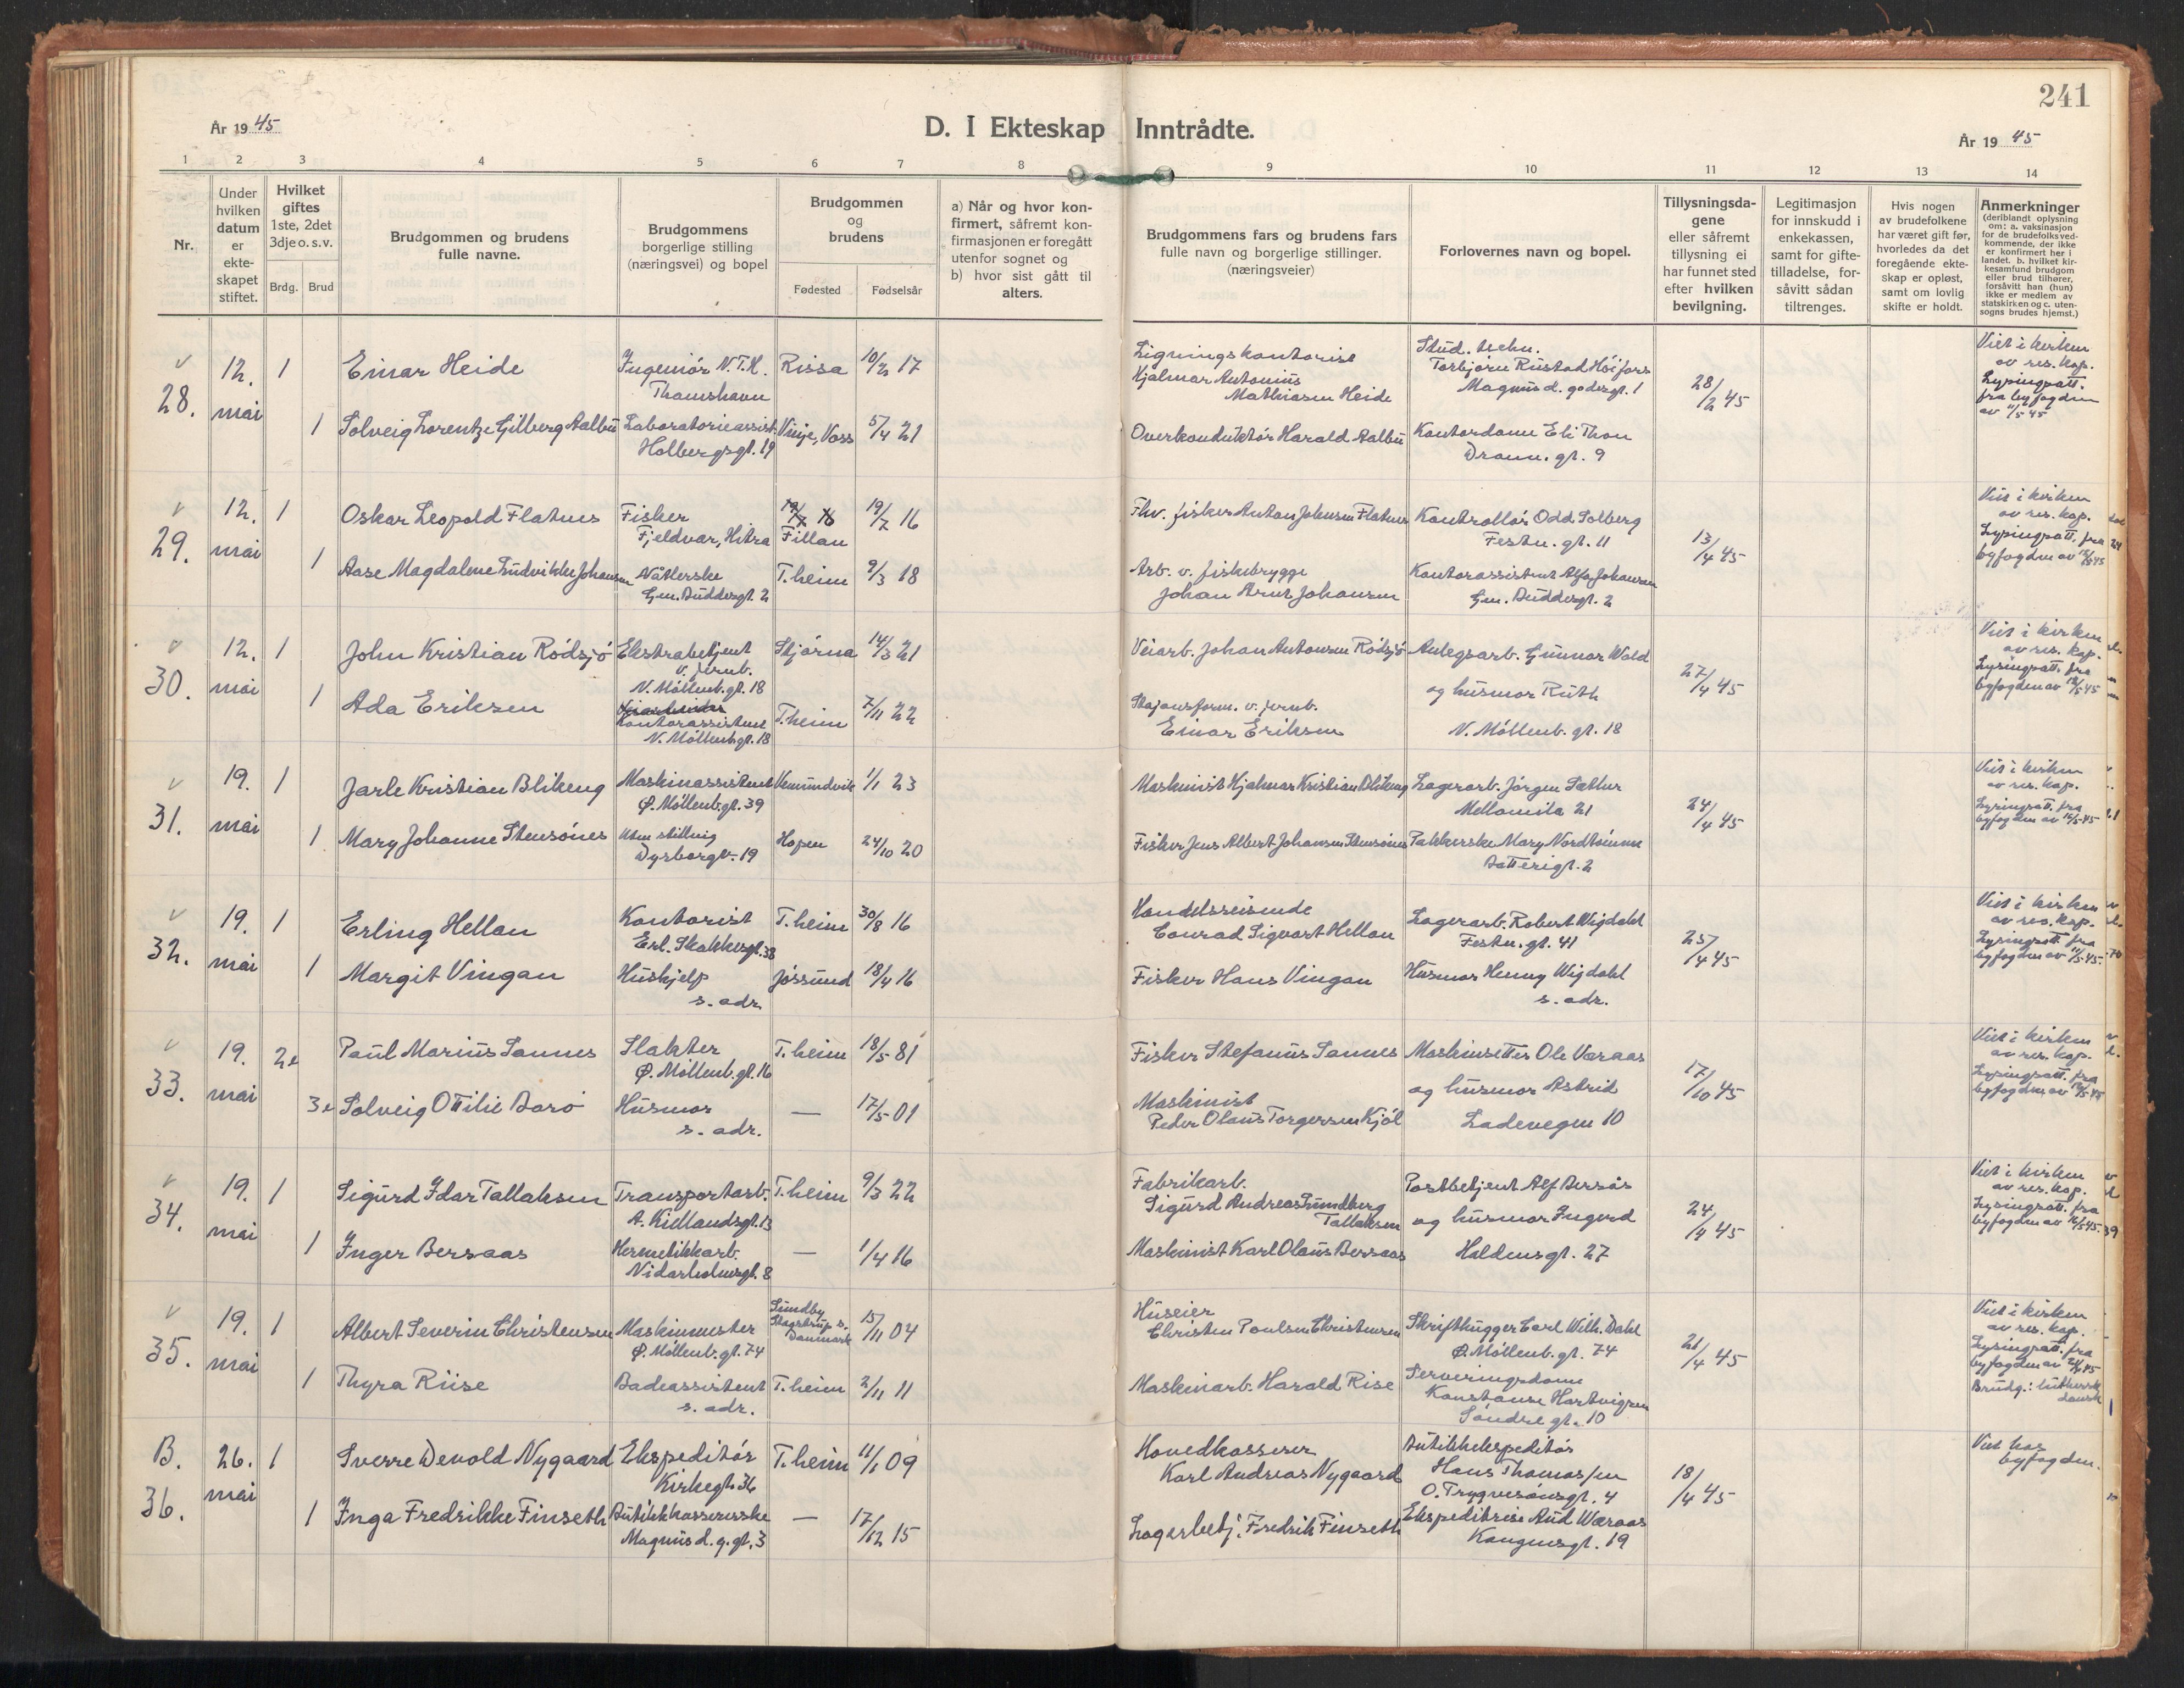 241
År 1945
D. I Ekteskap Inntrådte.
År 1945
1 2 3 4 5 6 7 8 9 10 11 12 13 14
Nr.
Under hvilken datum er ekteskapet stiftet.
Hvilket giftes 1ste, 2det 3dje o. s. v.
Brdg. Brud
Brudgommen og brudens fulle navne.
Brudgommens borgerlige stilling (næringsvei) og bopel
Brudgommen og brudens
Fødested Fødselsår
a) Når og hvor konfirmert, såfremt konfirmasjonen er foregått utenfor sognet og
b) hvor sist gått til alters.
Brudgommens fars og brudens fars fulle navn og borgerlige stillinger. (næringsveier)
Forlovernes navn og bopel.
Tillysningsdagene eller såfremt tillysning ei har funnet sted efter hvilken bevilgning.
Legitimasjon for innskudd i enkekassen, samt for giftetilladelse, forsåvitt sådan tiltrenges.
Hvis nogen av brudefolkene har været gift før, hvorledes da det foregående ekteskap er opløst, samt om lovlig skifte er holdt.
Anmerkninger
(deriblandt oplysning om: a. vaksinasjon for de brudefolks vedkommende, der ikke er konfirmert her i landet. b. hvilket kirkesamfund brudgom eller brud tilhører, forsåvitt han (hun) ikke er medlem av statskirken og c. utensogns brudes hjemst.)
28. 12. mai
1 Einar Heide
Ingeniör N.T.H. Thamshavn
Rissa 10/2 17
Ligningskontorist
Hjalmar Antonius
Mathiasen Heide
Stud. techn.
Torbjørn Rustad Höifors
Magnus d. godesgt. 1
28/2 45
Viet i kirken
av res. kap.
Lysingsatt.
fra byfogden
av 11/5 45
1 Solveig Lorentze Gilberg Aalbu
Laboratorieassist.
Holbergsgt. 19
Vinje, Voss 5/4 21
Overkonduktör Harald Aalbu
Kontordame Eli Thon
Dronn. gt. 9
29. 12. mai
1 Oskar Leopold Flatnes
Fisker
Fjeldvær, Hitra
Fillan 19/7 16
Fhv. fisker Anton Johnsen Flatnes
Kontrollör Odd Solberg
Festn. gt. 11
13/4 45
Viet i kirken
av res. kap.
Lysingsatt. fra
byfogden av 12/5 45
1 Aase Magdalene Ludvikke Johansen
Nåtlerske
Gen. Buddesgt. 2
T.heim 9/3 18
Arb. v. fiskebrygge
Johan Arnt Johansen
Kontorassistent Alfa Johansen
Gen. Buddesgt. 2
30. 12. mai
1 John Kristian Rödsjö
Ekstrabetjent
v. jernb.
N. Möllenb. gt. 18
Stjörna 14/3 21
Veiarb. Johan Antonsen Rödsjö
Anlegsarb. Gunnar Wold
og husmor Ruth
N. Möllenb. gt. 18
27/4 45
Viet i kirken
av res. kap.
Lysingsatt. fra
byfogden av 12/5 45
1 Ada Eriksen
Kontorassistent
N. Möllenb. gt. 18
T.heim 7/11 22
Stasjonsform. v. jernb.
Einar Eriksen
31. 19. mai
1 Jarle Kristian Blikeng
Maskinassistent
Ø. Möllenb. gt. 39
Vemundvik 1/1 23
Maskinist Hjalmar Kristian Blikeng
Lagerarb. Jörgen Sæther
Mellomila 21
24/4 45
Viet i kirken
av res. kap.
Lysingsatt. fra
byfogden av 16/5 45
1 Mary Johanne Stensönes
Uten stilling
Dyrborgv. 19
Hopen 24/10 20
Fisker Jens Albert Johansen Stensönes
Pakkerske Mary Nordtömme
Batterigt. 2
32. 19. mai
1 Erling Hellan
Kontorist
Erl. Skakkesgt. 38
T.heim 30/8 16
Handelsreisende
Conrad Sigvart Hellan
Lagerarb. Robert Wigdahl
Festn. gt. 41
25/4 45
Viet i kirken
av res. kap.
Lysingsatt. fra
byfogden av 11/5 45.
1 Margit Vingan
Hushjelp
s. adr.
Jössund 18/4 16
Fisker Hans Vingan
Husmor Henny Wigdahl
s. adr.
33. 19. mai
2e Paul Marius Sannes
Slakter
Ø. Möllenb. gt. 16
T.heim 18/5 81
Fisker Stefanus Sannes
Maskinsetter Ole Væraas
og husmor Astrid
Ladevegen 10
17/10 45
Viet i kirken
av res. kap.
Lysingsatt. fra
byfogden av 18/5 45
3e Solveig Ottilie Borö
Husmor
s. adr.
— 17/5 01
Maskinist
Peder Olaus Torgersen Kjöl
34. 19. mai
1 Sigurd Idar Tallaksen
Transportarb.
A. Kiellandsgt. 13
T.heim 9/3 22
Fabrikarb.
Sigurd Andreas Lundberg
Tallaksen
Postbetjent Alf Bersås
og husmor Ingerd
Haldensgt. 27
24/4 45
Viet i kirken
av res. kap.
Lysingsatt. fra
byfogden av 16/5 45.
1 Inger Bersaas
Hermetikkarb.
Nidarholmsgt. 8
— 1/4 16
Maskinist Karl Olaus Bersaas
35. 19. mai
1 Albert Severin Christensen
Maskinmester
Ø. Möllenb. gt. 74
Sundby
Danmark
15/11 04
Huseier
Christen Poulsen Christensen
Skrifthugger Carl Wilh. Dahl
Ø. Möllenb. gt. 74
21/4 45
Viet i kirken
av res. kap.
Lysingsatt. fra
byfogden av
Brudg.: luthersk
dansk
1 Thyra Riise
Badeassistent
s. adr.
T.heim 2/11 11
Maskinarb. Harald Rise
Serveringsdame
Konstanse Hartvigsen
Söndre gt. 10
B. 36. 26. mai
1 Sverre Devold Nygaard
Ekspeditör
Kirkegt. 36
T.heim 11/1 09
Hovedkasserer
Karl Andreas Nygaard
Butikkekspeditör
Hans Thomassen
O. Trygvesönsgt. 4
18/4 45
Viet hos
byfogden.
1 Inga Fredrikke Finseth
Butikkkassererske
Magnus d. g. gt. 3
— 17/12 15
Lagerbetj. Fredrik Finseth
Ekspeditrise Aud Væraas
Kongensgt. 19